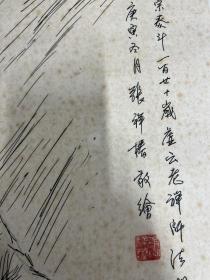 宗泰斗一百廿十歲虛云老禪師法
庚寅冬月張祥椿敬繪